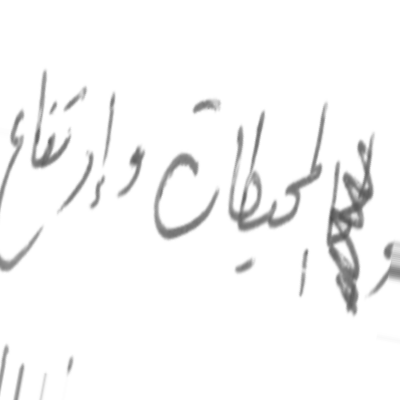 المحيطات وإرتفاع